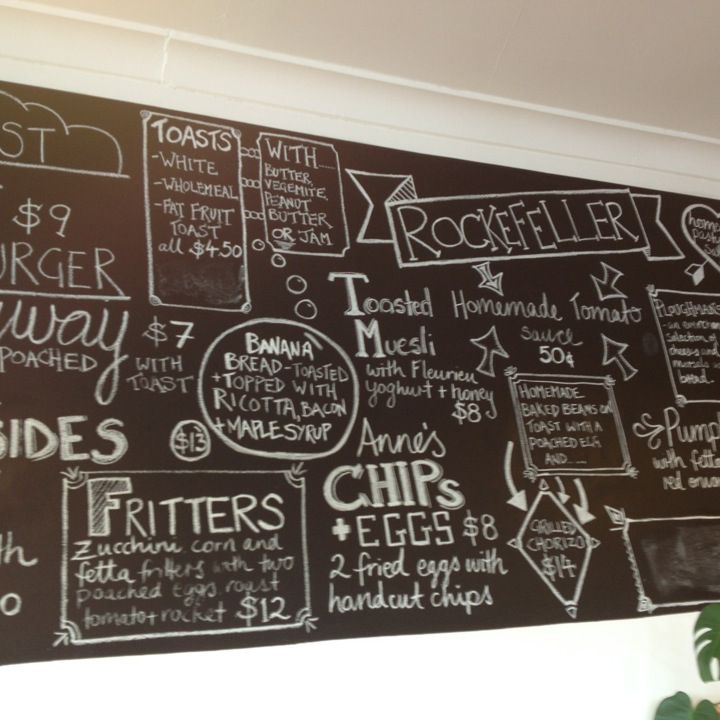 ST
$9
URGER
way
POACHED
$7
WITH
TOAST
SIDES
TOASTS
-WHITE
-WHOLEMEAL
-FAT FRUIT
TOAST
all $4.50
WITH.....
BUTTER,
VEGEMITE,
PEANUT
BUTTER
OR JAM
ROCKEFELLER
BANANA
BREAD-TOASTED
+TOPPED WITH
RICOTTA, BACON
+MAPLE SYRUP
$13
Toasted
Muesli
with Fleurieu
yoghurt + honey
$8
Homemade Tomato
Sauce
50¢
HOMEMADE
BAKED BEANS ON
TOAST WITH A
POACHED EGG
AND......
GRILLED
CHORIZO
$14
FRITTERS
Zucchini, corn and
fetta fritters with two
poached eggs, roast
tomato + rocket $12
Anne's
CHIPS
+ EGGS $8
2 fried eggs with
handcut chips
home
selection of
cheese and
bread.
Pump
with fetta
red onion